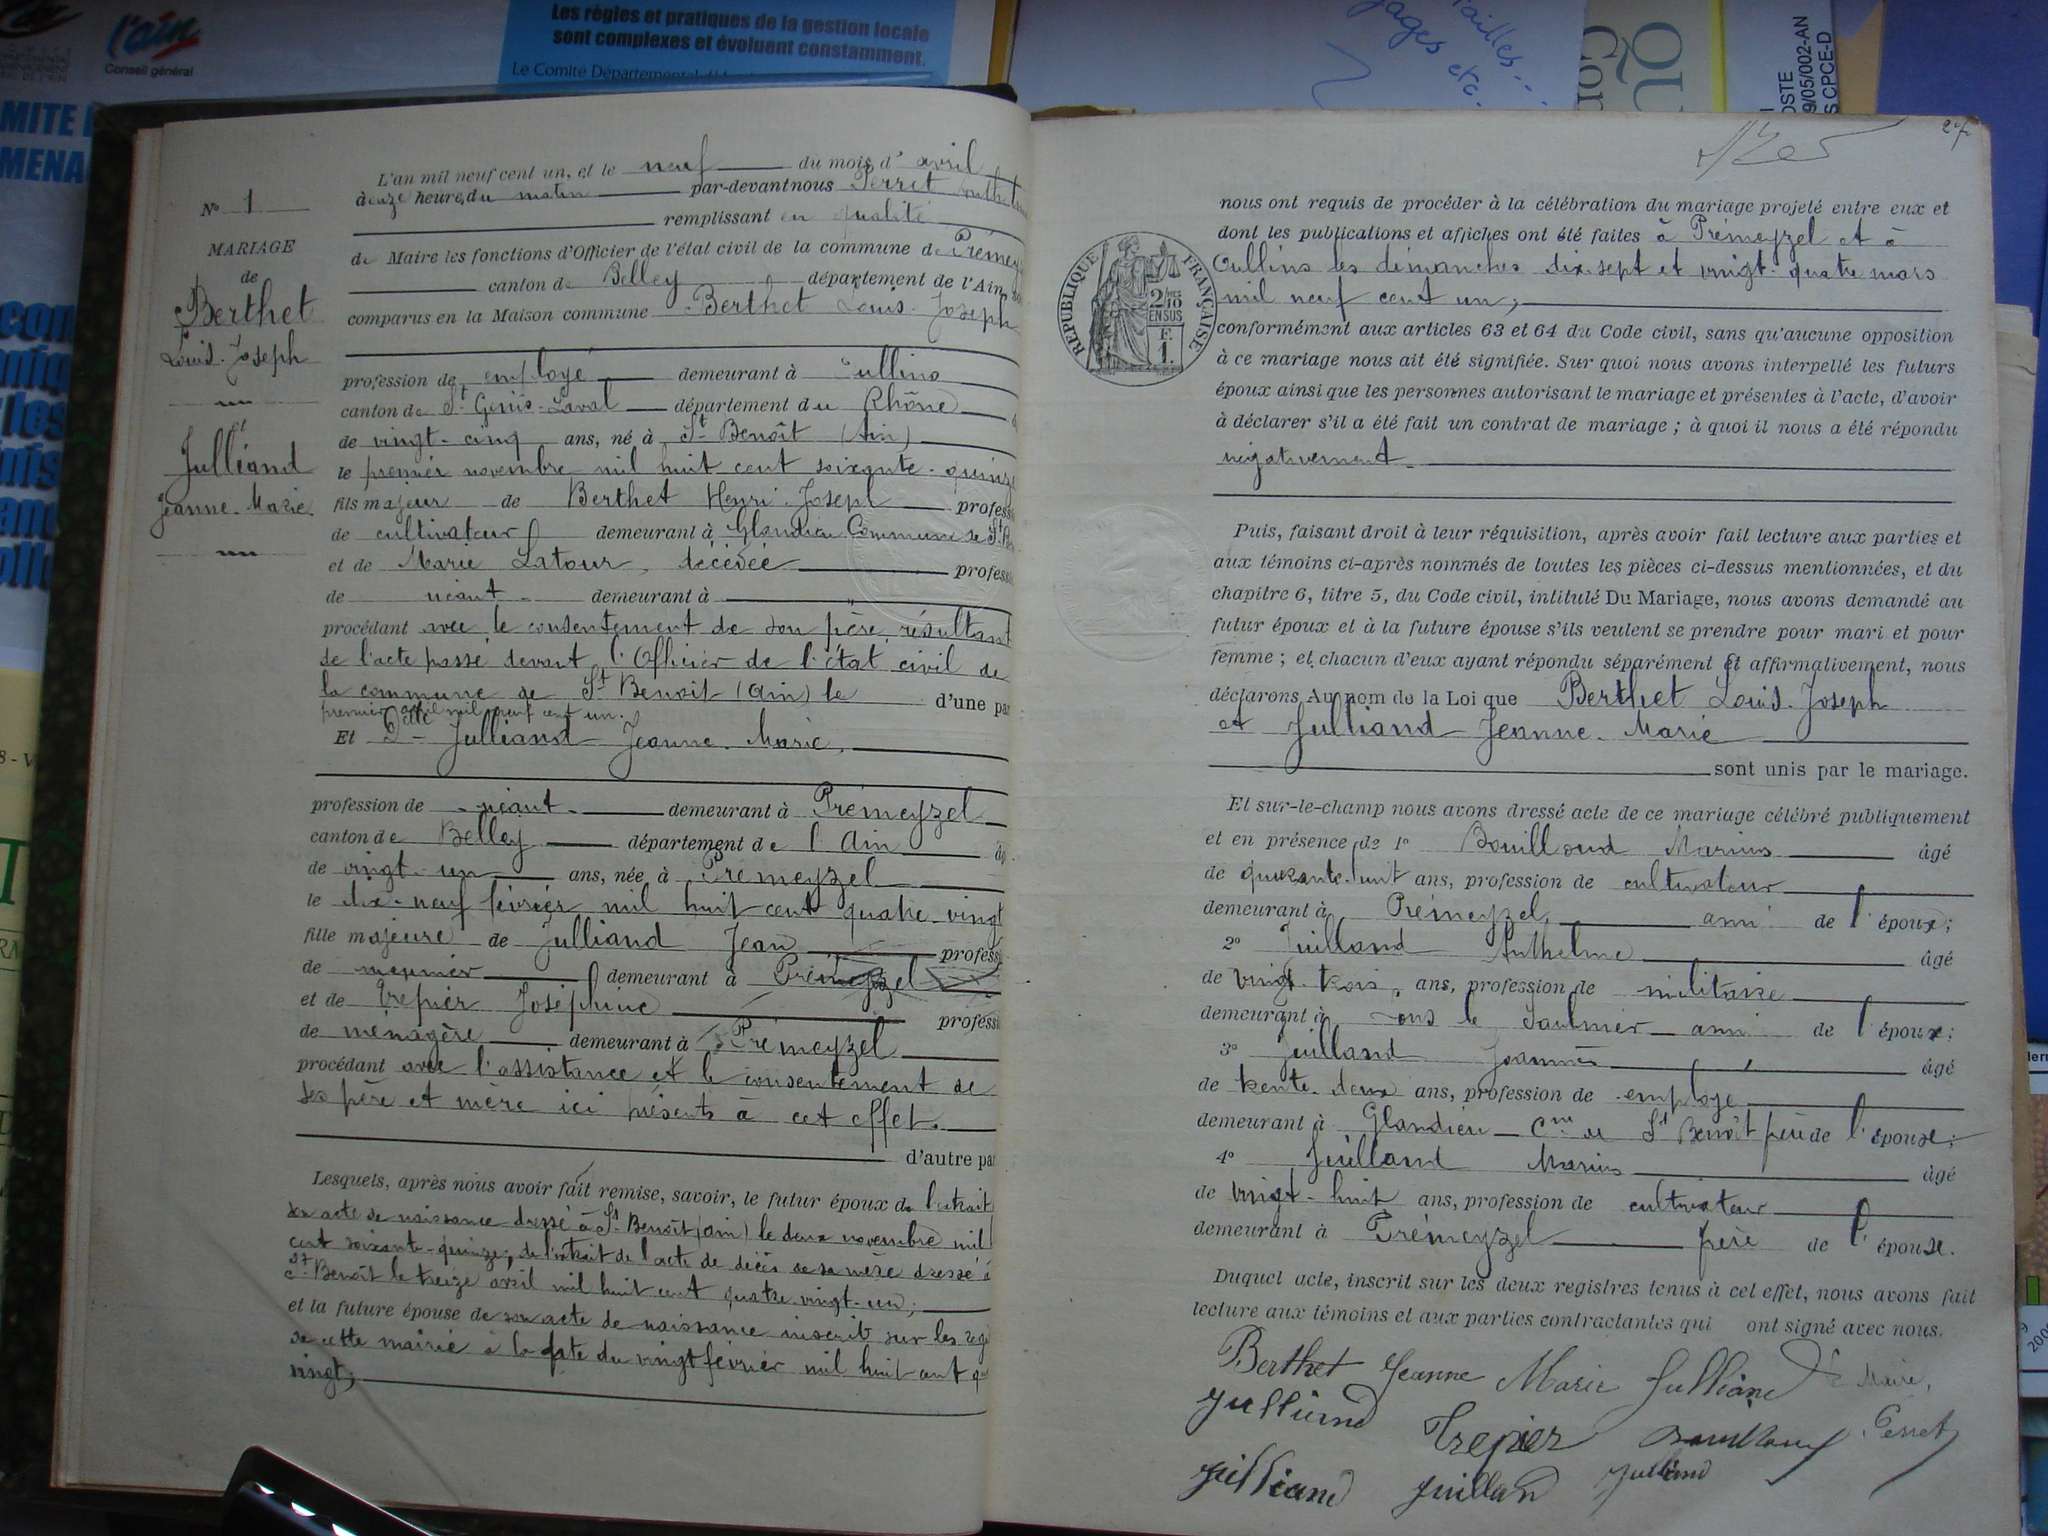 l'ain
Conseil général
Les règles et pratiques de la gestion locale
sont complexes et évoluent constamment.
Le Comité Départemental
MITE
MENA
L'an mil neuf cent un, et le neuf du mois d'avril
à onze heures du matin par-devant nous Perret
remplissant en qualité
de Maire les fonctions d'Officier de l'état civil de la commune de Prémeyzel
canton de Belley département de l'Ain
comparus en la Maison commune Berthet Louis-Joseph
profession de employé demeurant à Oullins
canton de St Genis-Laval département du Rhône
de vingt-cinq ans, né à St Benoît (Ain)
le premier novembre mil huit cent soixante-quinze
fils majeur de Berthet Henri-Joseph profess
de cultivateur demeurant à Glandieu Commune de St
et de Marie Latour, décédée profess
de néant demeurant à
procédant avec le consentement de son père, résultant
de l'acte passé devant l'Officier de l'état civil de
la commune de St Benoit (Ain) le d'une par
premier avril mil neuf cent un.
Et Dlle Julliand Jeanne-Marie,
profession de néant demeurant à Prémeyzel
canton de Belley département de l'Ain âg
de vingt-un ans, née à Prémeyzel
le dix-neuf février mil huit cent quatre-vingt
fille majeure de Julliand Jean profess
de meunier demeurant à Prémeyzel
et de Trepier Joséphine profess
de ménagère demeurant à Prémeyzel
procédant avec l'assistance et le consentement de
ses père et mère ici présents à cet effet.
d'autre par
Lesquels, après nous avoir fait remise, savoir, le futur époux de l'extrait
son acte de naissance dressé à St Benoît (Ain) le deux novembre mil
cent soixante-quinze; de l'extrait de l'acte de décès de sa mère dressé à
St Benoît le treize avril mil huit cent quatre-vingt-un;
et la future épouse de son acte de naissance inscrit sur les regi
de cette mairie à la date du vingt février mil huit cent qu
vingt;
No 1
MARIAGE
de
Berthet
Louis-Joseph
et
Julliand
Jeanne-Marie
27
RÉPUBLIQUE FRANÇAISE
2/10
EN SUS
F.
1.
nous ont requis de procéder à la célébration du mariage projeté entre eux et
dont les publications et affiches ont été faites à Prémeyzel et à
Oullins les dimanches dix-sept et vingt-quatre mars
mil neuf cent un;
conformément aux articles 63 et 64 du Code civil, sans qu'aucune opposition
à ce mariage nous ait été signifiée. Sur quoi nous avons interpellé les futurs
époux ainsi que les personnes autorisant le mariage et présentes à l'acte, d'avoir
à déclarer s'il a été fait un contrat de mariage; à quoi il nous a été répondu
négativement.
Puis, faisant droit à leur réquisition, après avoir fait lecture aux parties et
aux témoins ci-après nommés de toutes les pièces ci-dessus mentionnées, et du
chapitre 6, titre 5, du Code civil, intitulé Du Mariage, nous avons demandé au
futur époux et à la future épouse s'ils veulent se prendre pour mari et pour
femme; et chacun d'eux ayant répondu séparément et affirmativement, nous
déclarons Au nom de la Loi que Berthet Louis-Joseph
et Julliand Jeanne-Marie
sont unis par le mariage.
Et sur-le-champ nous avons dressé acte de ce mariage célébré publiquement
et en présence de 1o Bouilloud Marius âgé
de quarante-huit ans, profession de cultivateur
demeurant à Prémeyzel, ami de l'époux;
2o Juilland Anthelme âgé
de vingt-trois, ans, profession de militaire
demeurant à Lons le Saulnier ami de l'époux;
3o Juilland Joannès âgé
de trente-deux ans, profession de employé
demeurant à Glandieu Cne de St Benoît frère de l'épouse;
4o Juilland Marius âgé
de vingt-huit ans, profession de cultivateur
demeurant à Prémeyzel frère de l'épouse.
Duquel acte, inscrit sur les deux registres tenus à cet effet, nous avons fait
lecture aux témoins et aux parties contractantes qui ont signé avec nous.
Berthet Jeanne Marie Julliand Le Maire,
Julliand Trepier Bouilloud Perret
Juilliand Juilland Juilland